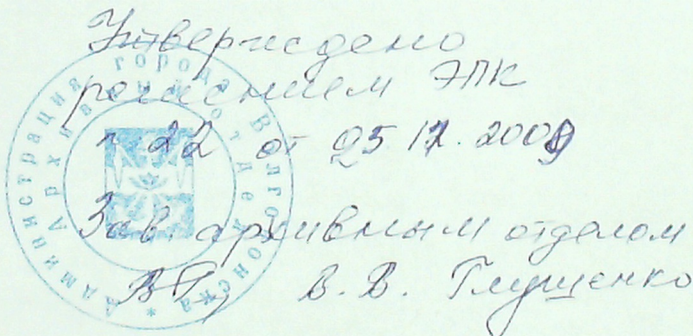 Утверждено
решением ЭПК
п 22 от 25 12. 2009
Зав. архивным отделом
В. В. Глущенко
Администрация города Волгодонска *
Архивный отдел